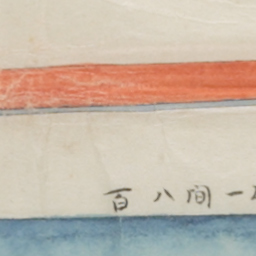 百八間一